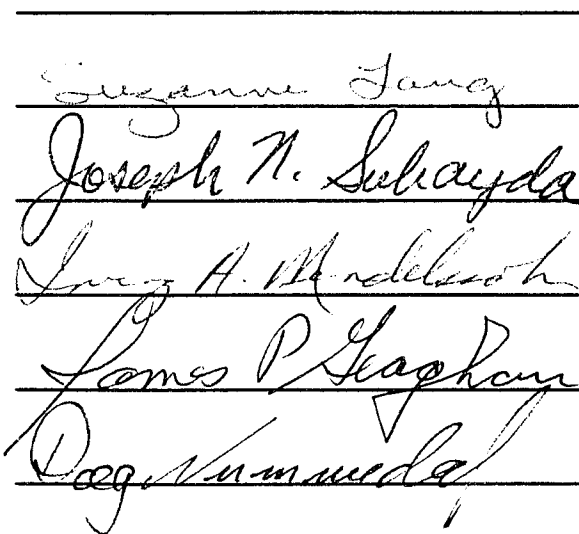 Suzanne Fang
Joseph N. Suhayda
Irving A. Mendelssohn
James P Geaghan
Dag Nummedal